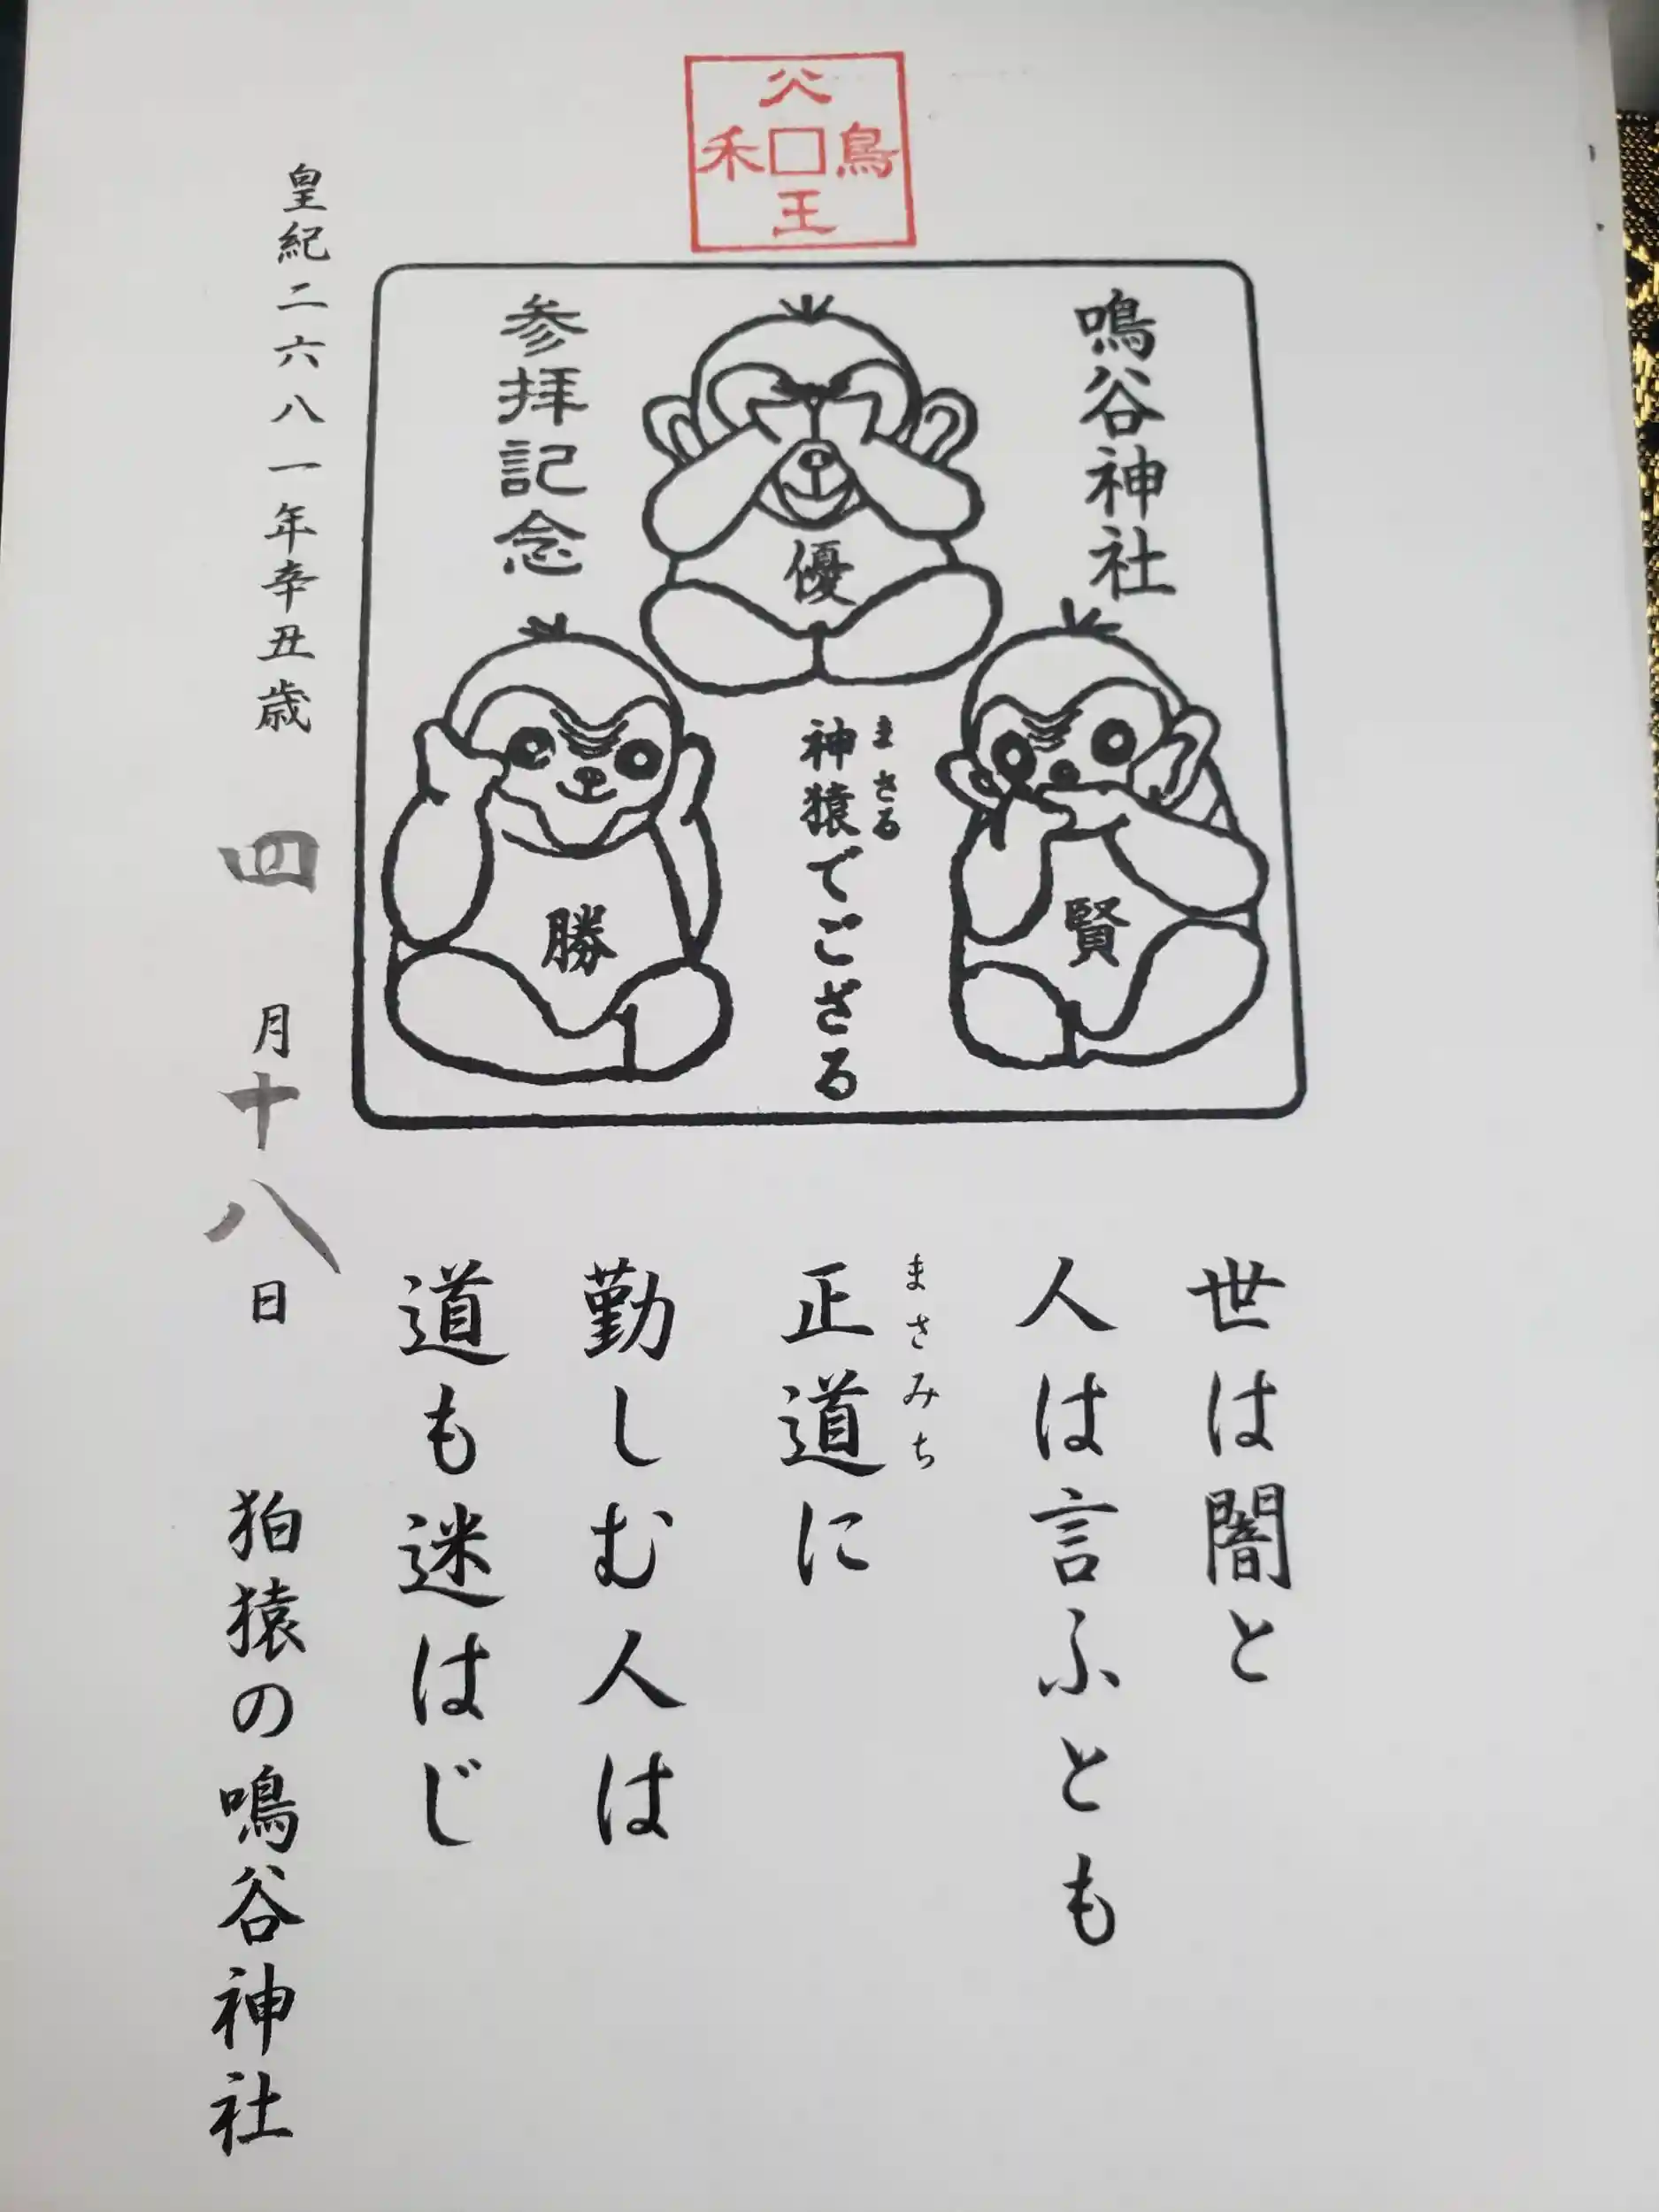 八
禾口鳥
王
鳴谷神社
優
参拝記念
賢
神猿でござる
まさる
勝
世は闇と
人は言ふとも
正道に
まさみち
勤しむ人は
道も迷はじ
皇紀二六八一年辛丑歳四月十八日
狛猿の鳴谷神社